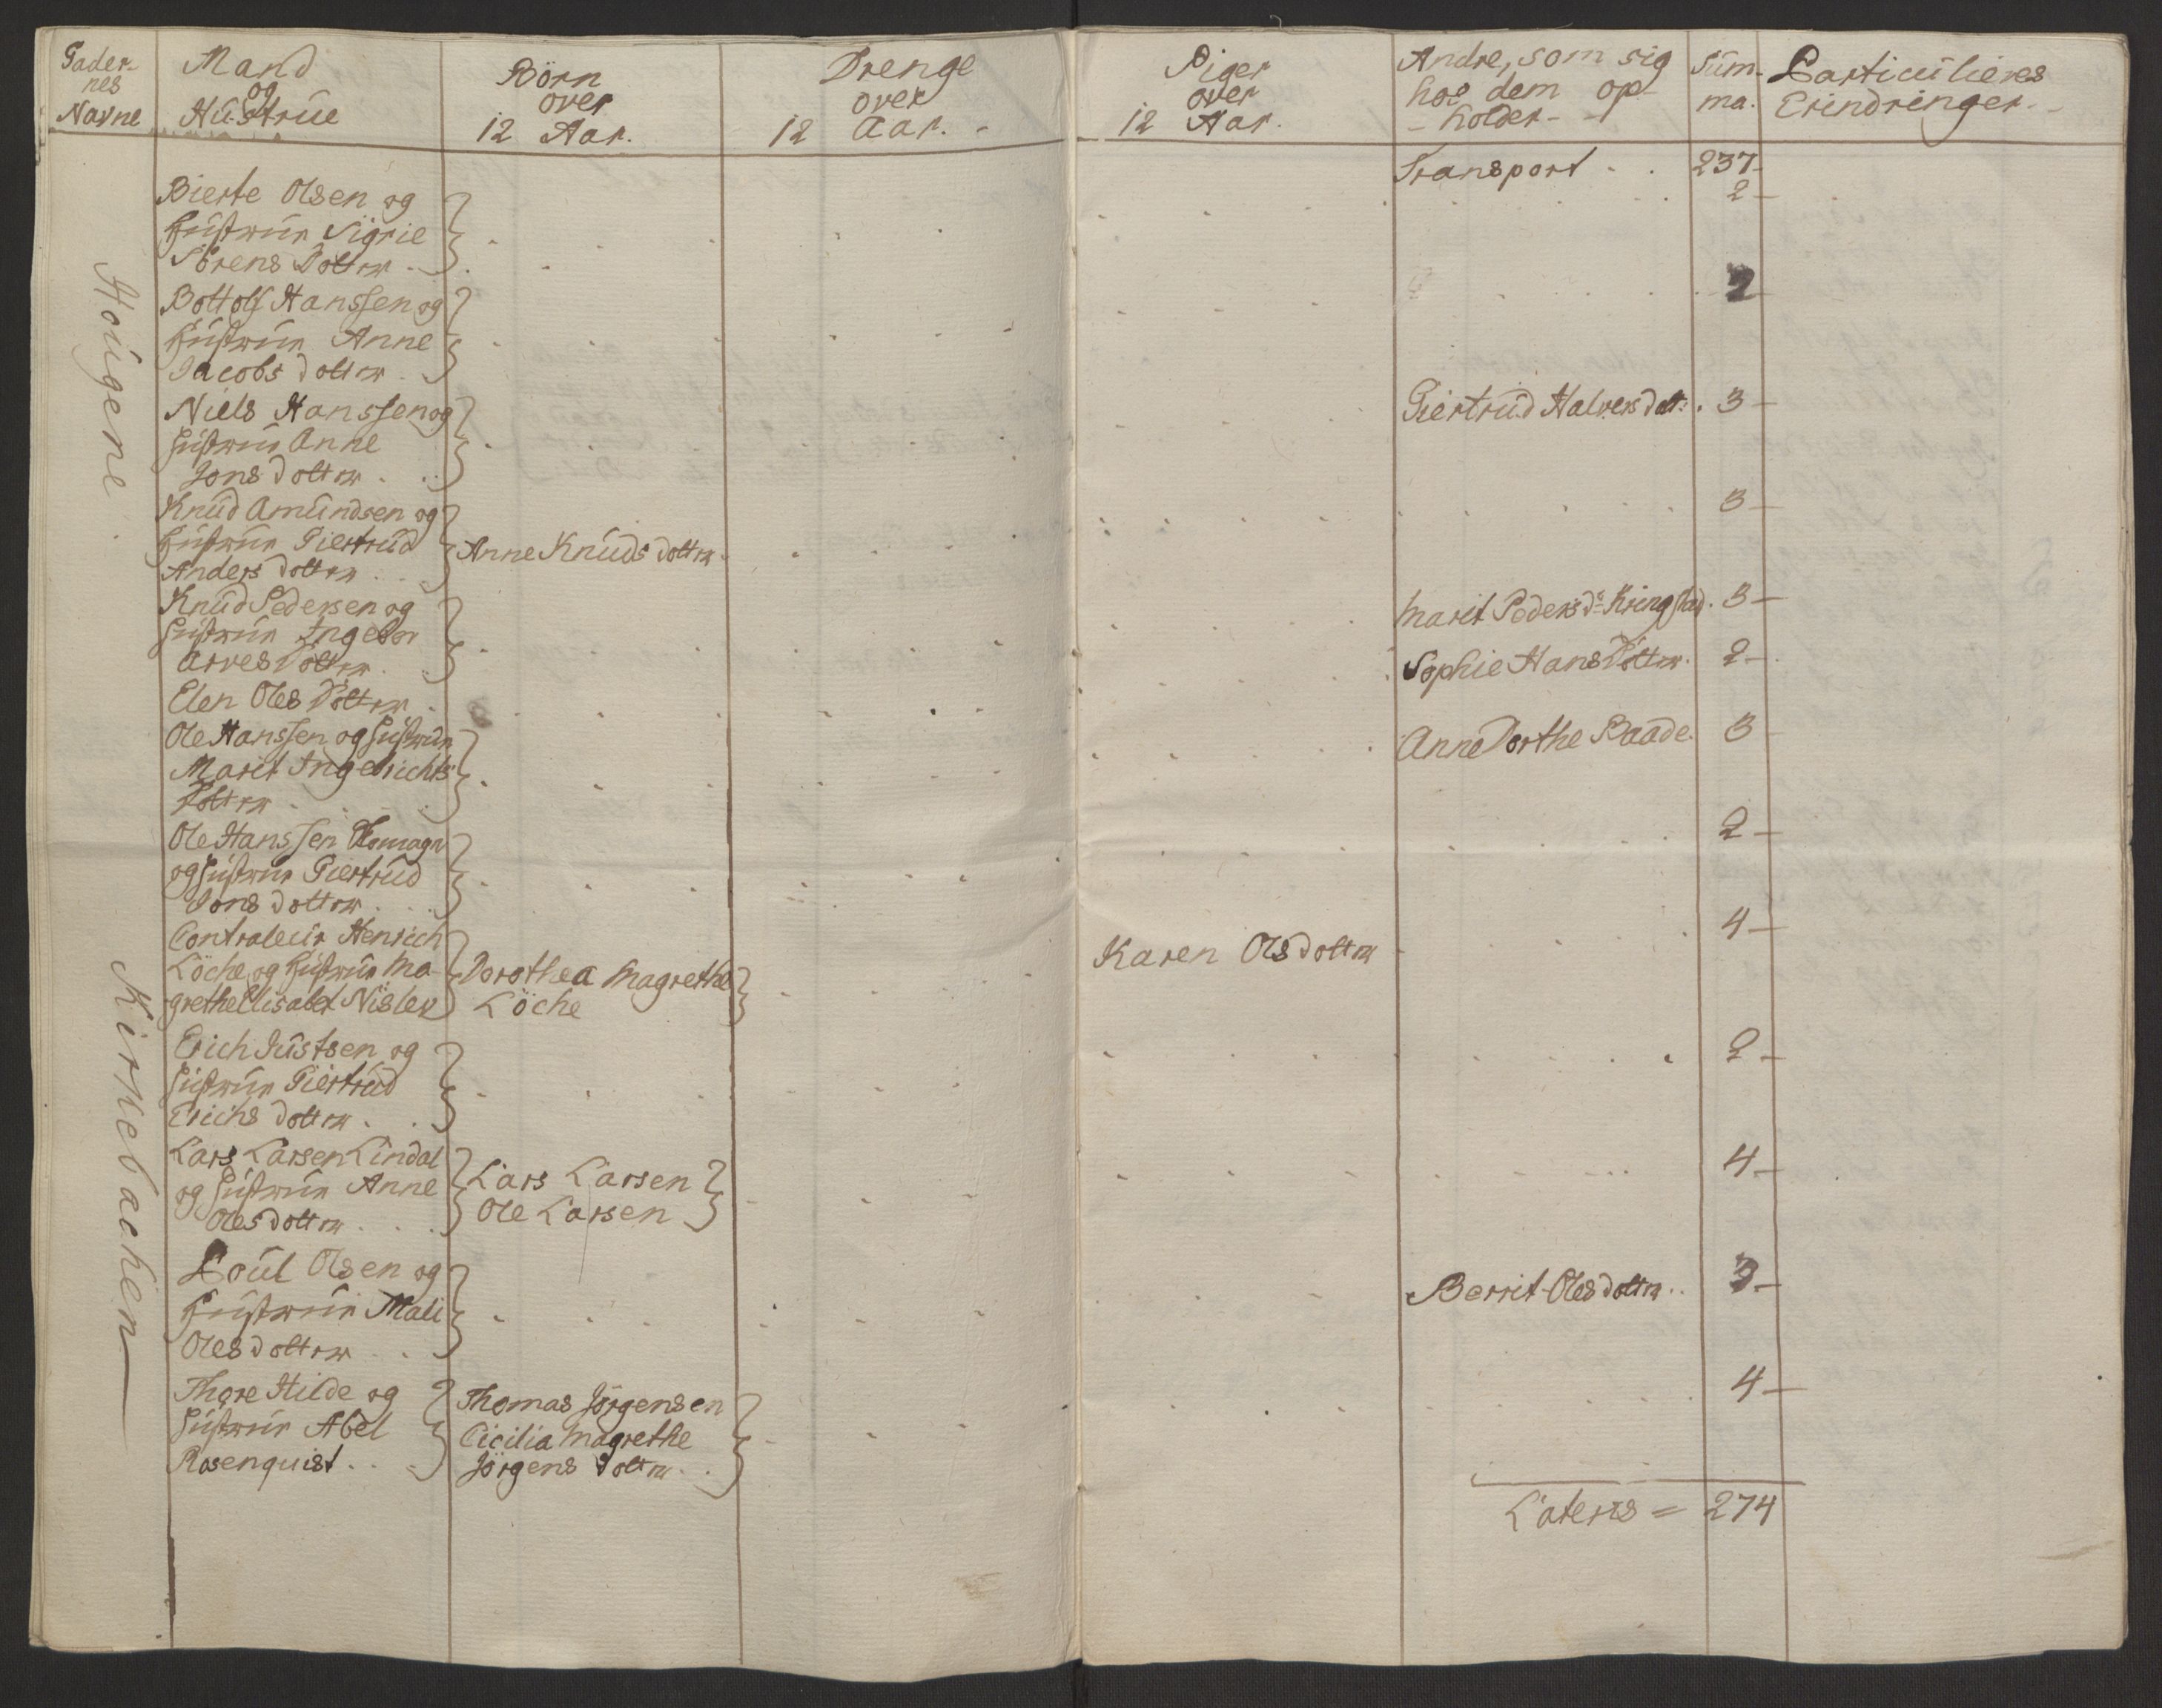 Gader-
nes
Navne
Mand
og
Hustrue
Börn
over
12 Aar.
Drenge
over
12 Aar.
Piger
over
12 Aar.
Andre, som sig
hos dem op-
holder
Sum-
ma.
Particulieres
Erindringer
Transport 237
Hougene
Bierte Olsen og
Hustrue Sigrie
Sörens Dotter 2
Bottolf Hanssen og
Hustrue Anne
Jacobs dotter 2
Niels Hanssen og
Hustrue Anne
Jons dotter
Giertrud Halvers dott: 3
Knud Amundsen og
Hustrue Giertrud
Anders dotter
Anne Knuds dotter 3
Knud Pedersen og
Hustrue Ingebor
Arves Dotter
Marit Peders dr Kringstad 3
Elen Oles Dotter
Sophie Hans Dotter 2
Ole Hanssen og Hustrue
Marit Ingebrichts
Dotter
Anne Dorthe Baade 3
Ole Hanssen
og Hustrue Giertrud
Jons dotter 2
Kirkebachen
Contraleur Henrich
Löche og Hustrue Ma-
grethe Elisabet Nisler
Dorothea Magrethe
Löche
Karen Ols dotter 4
Erich Justsen og
Hustrue Giertrud
Erichs dotter 2
Lars Larsen Lindal
og Hustrue Anne
Oles dotter
Lars Larsen
Ole Larsen 4
Poul Olsen og
Hustrue Mali
Oles dotter
Berrit Oles dotter 3
Thore Hilde og
Hustrue Abel
Rosenquist
Thomas Jörgensen
Cicilia Magrethe
Jörgens dotter 4
Lateris = 274